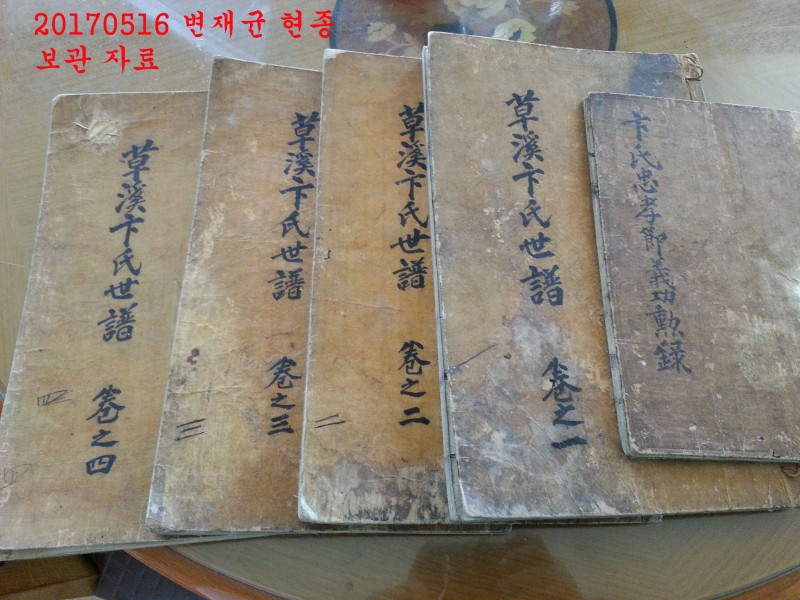 20170516 변재균 현종
보관 자료
草溪卞氏世譜 卷之四
四
草溪卞氏世譜 卷之三
三
草溪卞氏世譜 卷之二
二
草溪卞氏世譜 卷之一
卞氏忠孝節義功勲録